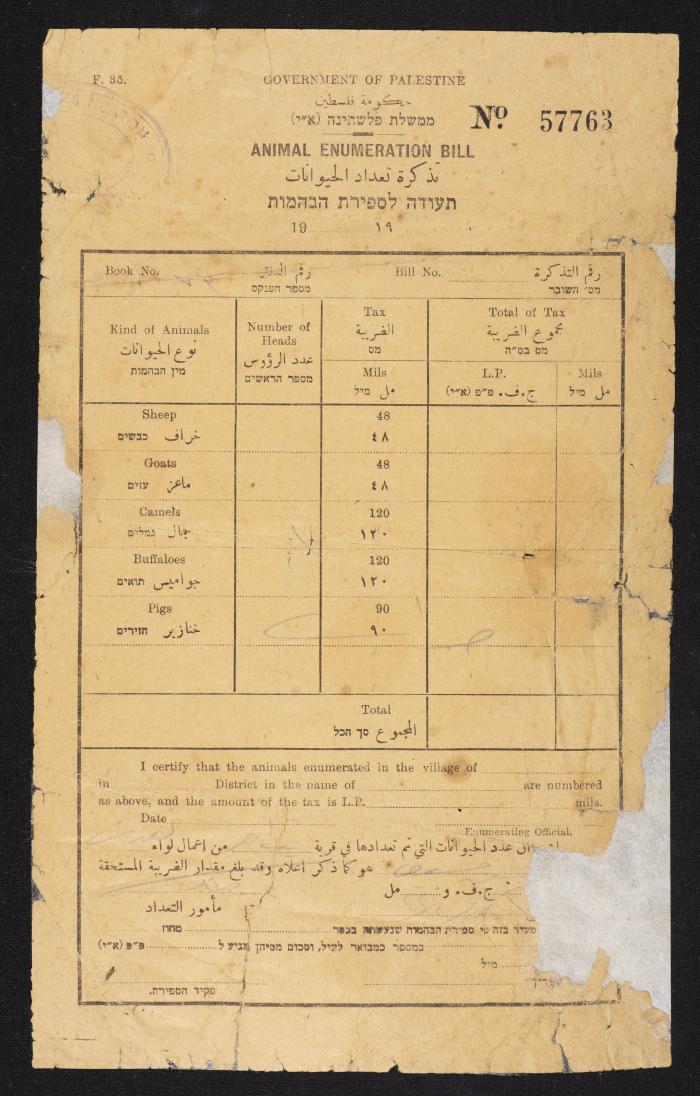 F. 35.
GOVERNMENT OF PALESTINE
حكومة فلسطين
ממשלת פלשתינה (א״י)
No. 57763
ANIMAL ENUMERATION BILL
تذكرة تعداد الحيوانات
תעודה לספירת הבהמות
19 ١٩
Book No. رقم الدفتر Bill No. رقم التذكرة
מספר הפנקס מס׳ השובר
Kind of Animals
نوع الحيوانات
מין הבהמות
Number of Heads
عدد الرؤوس
מספר הראשים
Tax
الضريبة
מס
Mils
مل מיל
Total of Tax
مجموع الضريبة
מס בס״ה
L.P. Mils
ج.ف. פ״פ (א״י) مل מיל
Sheep 48
خراف כבשים ٤٨
Goats 48
ماعز עזים ٤٨
Camels 120
جمال גמלים ١٢٠
Buffaloes 120
جواميس תואים ١٢٠
Pigs 90
خنازير חזירים ٩٠
Total
المجموع סך הכל
I certify that the animals enumerated in the village of
in District in the name of are numbered
as above, and the amount of the tax is L.P. mils.
Date
Enumerating Official.
ان عدد الحيوانات التي تم تعدادها في قرية من اعمال لواء
هو كما ذكر اعلاه وقد بلغ مقدار الضريبة المستحقة
ج.ف. و مل
مأمور التعداد
מעיד בזה כי ספירת הבהמות שנעשתה בכפר מחוז
במספר כמבואר לעיל, וסכום מסיהן מגיע ל פ״פ (א״י)
מיל
פקיד הספירה.